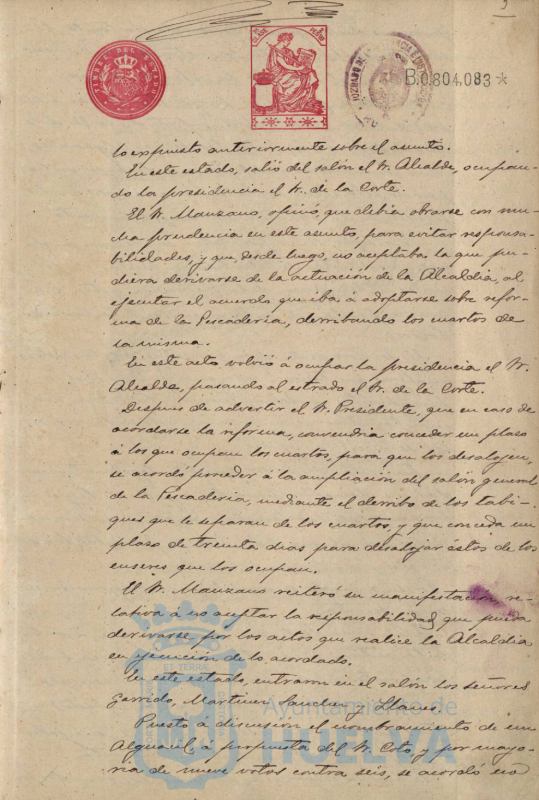 3
TIMBRE DEL ESTADO
CLASE
B.0.804.083*
lo expuesto anteriormente sobre el asunto.
En este estado, salió del salón el Sr. Alcalde, ocupan-
do la presidencia el Sr. de la Corte.
El Sr. Manzano, opinó, que debia obrarse con mu-
cha prudencia en este asunto, para evitar responsa-
bilidades, y que, desde luego, no aceptaba la que pu-
diera derivarse de la actuación de la Alcaldia, al
ejecutar el acuerdo que iba á adoptarse sobre refor-
ma de la Pescaderia, derribando los cuartos de
la misma.
En este acto volvió á ocupar la presidencia el Sr.
Alcalde, pasando al estrado el Sr. de la Corte.
Despues de advertir el Sr. Presidente, que en caso de
acordarse la reforma, convendria conceder un plazo
á los que ocupan los cuartos, para que los desalojen,
se acordó proceder á la ampliación del salón general
de la Pescaderia, mediante el derribo de los tabi-
ques que le separan de los cuartos, y que conceda un
plazo de treinta dias para desalojar éstos de los
enseres que los ocupan.
El Sr. Manzano reiteró su manifestación re-
lativa á no aceptar la responsabilidad que pueda
derivarse por los actos que realice la Alcaldia
en ejecución de lo acordado.
En este estado, entraron en el salón los señores
Garrido, Martinez Sanchez y Llanes.
Puesto á discusion el nombramiento de un
Alguacil, á propuesta del Sr. Coto, y por mayo-
ria de nueve votos contra seis, se acordó
Ayuntamiento de
HUELVA